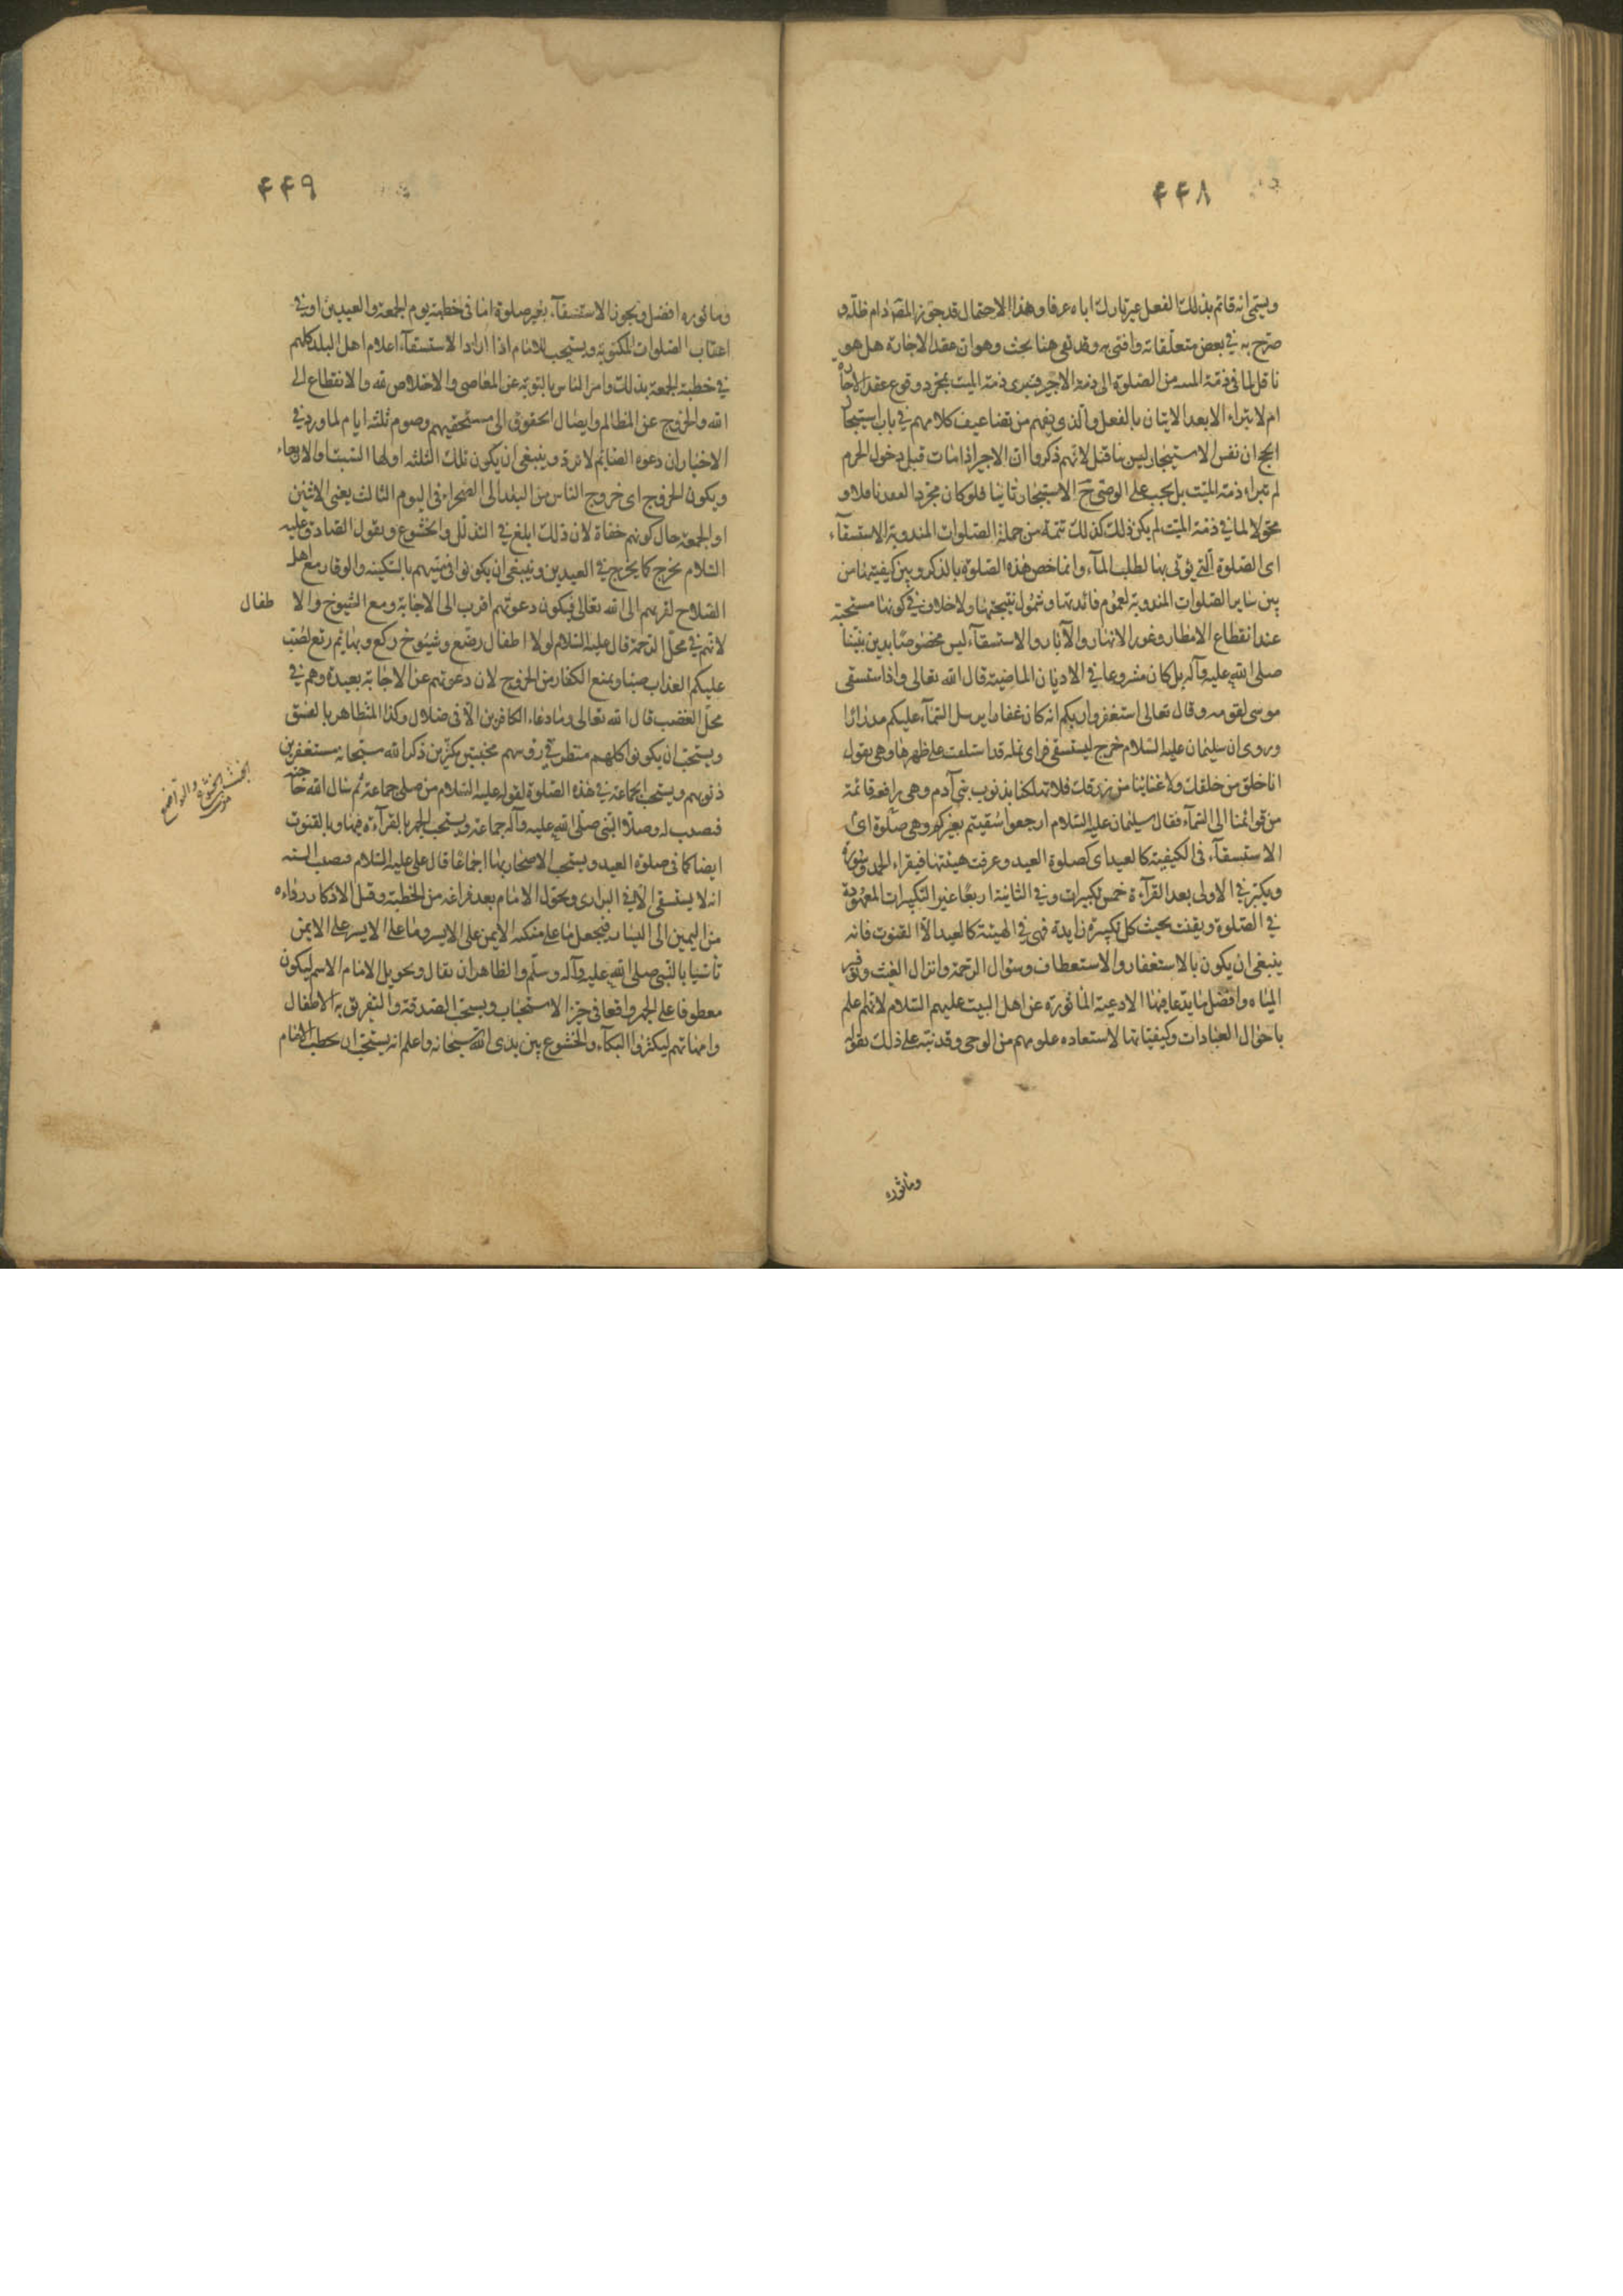 ۴۴۸
ويسمى انه قائم بذلك الفعل غير تارك اياه عرفا وهذا الاحتمال قد جوزه المصّ دام ظلّه و
صرّح به في بعض متعلّقاته وافتى به وقد بقى هنا بحث وهو ان عقد الاجارة هل هو
ناقل لما فى ذمّة الميت من الصلوة الى ذمة الاجير فتبرى ذمة الميت بمجرد وقوع عقد الاجارة
ام لا يتبراء الا بعد الاتيان بالفعل والذى يفهم من تضاعيف كلامهم في باب استيجار
الحج ان نفس الاستيجار ليس ناقل لانهم ذكروا ان الاجير اذا مات قبل دخول الحرم
لم تبراء ذمة الميّت بل يجب على الوصىّ حَ الاستيجار ثانيا فلو كان مجرد العقد ناقلا و
محولا لما في ذمة الميت لم يكن ذلك كذلك تتمة من جملة الصّلوات المندوبة الاستسقآء
اى الصّلوة الّتي يؤتى بها لطلب المآء وانما خص هذه الصّلوة بالذكر وبين كيفيتها من
بين ساير الصّلوات المندوبة لعموم فائدتها وشمول نتيجتها ولا خلاف في كونها مستحبة
عند انقطاع الامطار وغور الانهار والآبار والاستسقآء ليس مخصوصًا بدين نبيّنا
صلى الله عليه وآله بل كان مشروعا في الاديان الماضية قال الله تعالى واذ استسقى
موسى لقومه وقال تعالى استغفروا ربكم انه كان غفارا يرسل السّمآء عليكم مدرارًا
وروى ان سليمان عليه السّلام خرج ليستسقى فراى نملة قد استلقت على ظهرها وهى تقول
انا خلق من خلقك ولا غنا بنا من رزقك فلا تهلكنا بذنوب بني آدم وهى رافعة قائمة
من قوائمها الى السّمآء فقال سليمان عليه السّلام ارجعوا سُقيتم بغيركم وهى صلوة اى
الاستسقآء فى الكيفية كالعيد اى كصلوة العيد وعرفت هيئتها فيقراء الحمد وسورة
ويكبّر في الاولى بعد القرآءة خمس تكبيرات وفي الثانية اربعًا غير التكبيرات المعهودة
في الصّلوة ويقنت بحيث كل تكبيرة زايدة فهى في الهيئة كالعيد الّا القنوت فانه
ينبغى ان يكون بالاستغفار والاستعطاف وسؤال الرّحمة وانزال الغيث وتوفير
المياه وافضل ما يدعا فيها الادعية المأثورة عن اهل البيت عليهم السّلام لانهم اعلم
باحوال العبادات وكيفياتها لاستعاده علومهم من الوحى وقد نبّه على ذلك بقوله
وماثوره
۴۴۹
وماثوره افضل ويجوز الاستسقآء بغير صلوة اما فى خطبة يوم الجمعة والعيدين او في
اعقاب الصّلوات المكتوبة ويستحب للامام اذا اراد الاستسقآء اعلام اهل البلد كلهم
في خطبة الجمعة بذلك وامر الناس بالتوبة عن المعاصى والاخلاص لله والانقطاع الى
الله والخروج عن المظالم وايصال الحقوق الى مستحقيهم وصوم ثلثة ايام لما ورد في
الاخبار ان دعوة الصايم لا ترد وينبغى ان يكون تلك الثلثة اولها السّبت والاربعاء
ويكون الخروج اى خروج الناس من البلد الى الصّحراء فى اليوم الثالث يعنى الاثنين
او الجمعة حال كونهم حفاة لان ذلك ابلغ في التذلّل والخشوع ويقول الصّادق عليه
السّلام يخرج كما يخرج في العيدين وينبغى ان يكونوا فى مشيهم بالسّكينة والوقار مع اهل
الصّلاح لقربهم الى الله تعالى فيكون دعوتهم اقرب الى الاجابة ومع الشيوخ والا طفال
لانّهم في محلّ الرّحمة قال عليه السّلام لولا اطفال رضّع وشيوخ ركّع وبهايم رتّع لصُبّ
عليكم العذاب صبّا ويمنع الكفار من الخروج لان دعوتهم عن الاجابة بعيدة وهم في
محلّ الغضب قال الله تعالى وما دعاء الكافرين الّا فى ضلال وكذا المتظاهر بالفسق
ويستحبّ ان يكونوا كلهم متطرقي رؤسهم مخبتين مكثرين ذكر الله سبحانه مستغفرين
ذنوبهم ويستحب الجماعة في هذه الصّلوة لقوله عليه السّلام من صلى جماعة ثم سال الله حاجته
قضيت له وصلّا النّبى صلّى الله عليه وآله جماعة ويستحب الجهر بالقرآءة فيها وبالقنوت
ايضا كما فى صلوة العيد ويستحب الاصحار بها اجماعًا قال على عليه السّلام مضت السنة
انه لا يستسقى الّا في البرارى ويحوّل الامام بعد فراغه من الخطبة وقبل الاذكار رداءه
من اليمين الى اليسار فيجعل ما على منكبه الايمن على الايسر وما على الايسر على الايمن
تأسّيا بالنّبى صلى الله عليه وآله وسلّم والظاهر ان يقال وتحويل الامام الاسم ليكون
معطوفا على الجهر واقعا فى حيّز الاستحباب ويستحبّ الصّدقة والتفريق بين الاطفال
وامهاتهم ليكثروا البكآء والخشوع بين يدى الله سبحانه واعلم انه يستحبّ ان يخطب الامام